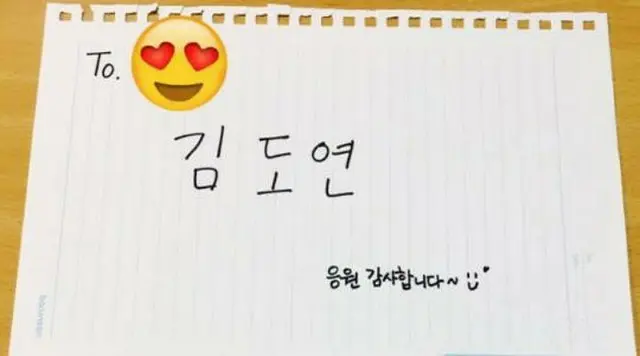 To.
김도연
응원 감사합니다~